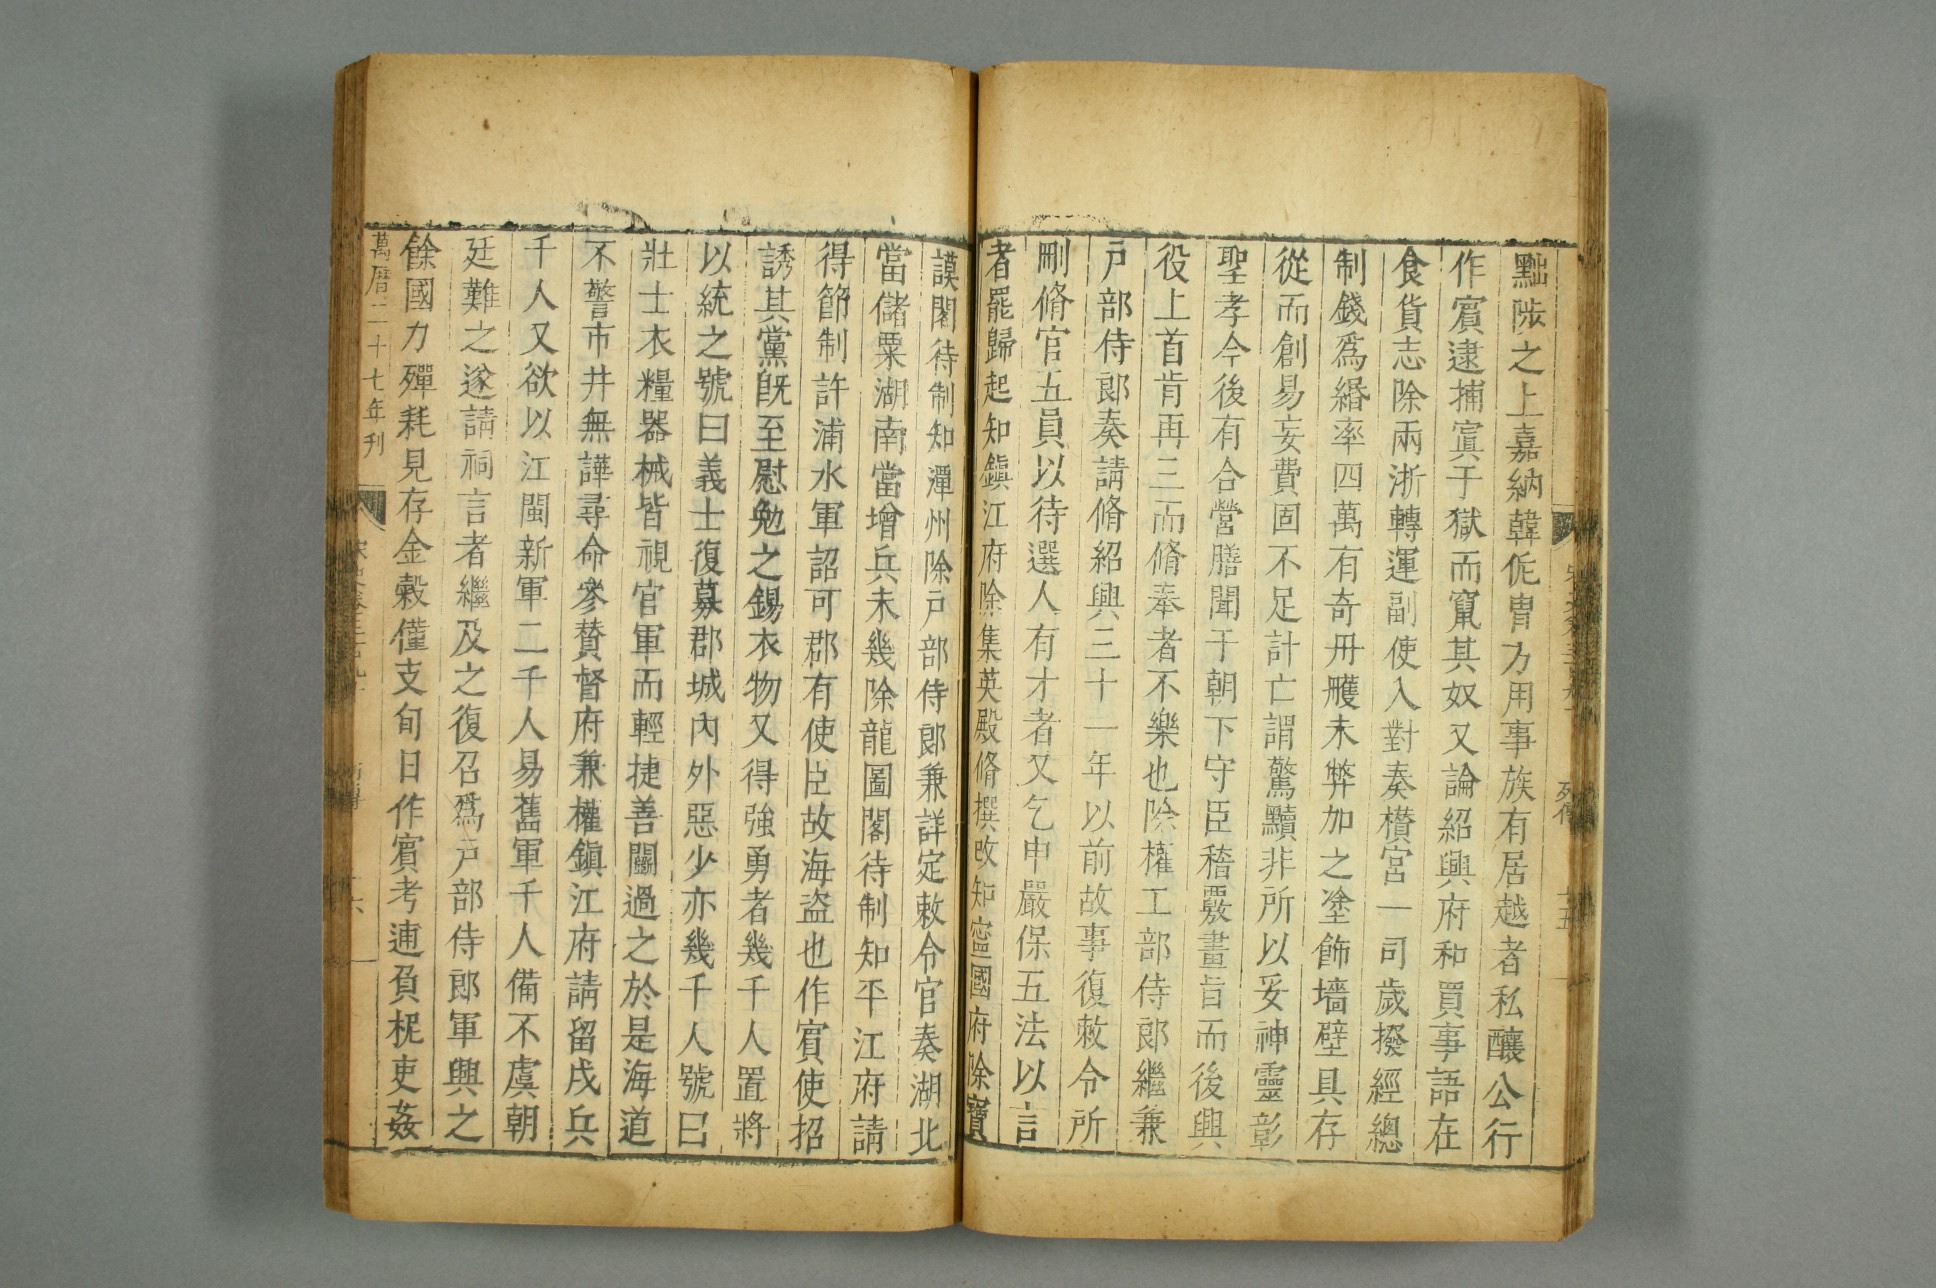 黜陟之上嘉納韓侂胄方用事族有居越者私釀公行
作賓逮捕寘于獄而竄其奴又論紹興府和買事語在
食貨志除兩浙轉運副使入對奏欑宮一司歲撥經總
制錢爲緡率四萬有奇丹雘未弊加之塗飾墻壁具存
從而創易妄費固不足計亡謂驚黷非所以妥神靈彰
聖孝今後有合營膳聞于朝下守臣稽覈畫旨而後興
役上首肯再三而脩奉者不樂也除權工部侍郎繼兼
戸部侍郎奏請脩紹興三十一年以前故事復敕令所
刪脩官五員以待選人有才者又乞申嚴保五法以言
者罷歸起知鎮江府除集英殿脩撰改知寧國府除寶
謨閣待制知潭州除戸部侍郎兼詳定敕令官奏湖北
當儲粟湖南當增兵未幾除龍圖閣待制知平江府請
得節制許浦水軍詔可郡有使臣故海盜也作賓使招
誘其黨旣至慰勉之錫衣物又得強勇者幾千人置將
以統之號曰義士復募郡城內外惡少亦幾千人號曰
壯士衣糧器械皆視官軍而輕捷善鬭過之於是海道
不警市井無譁尋命參贊督府兼權鎮江府請留戍兵
千人又欲以江閩新軍二千人易舊軍千人備不虞朝
廷難之遂請祠言者繼及之復召爲戸部侍郎軍興之
餘國力殫耗見存金穀僅支旬日作賓考逋負柅吏姦
萬曆二十七年刊